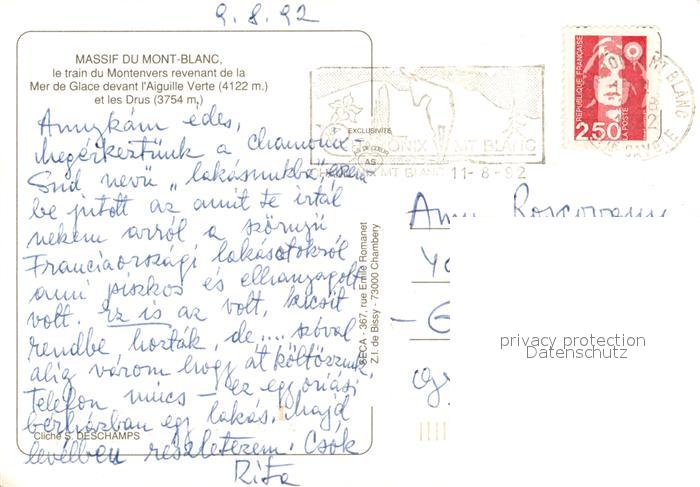 9.8.92
MASSIF DU MONT-BLANC,
le train du Montenvers revenant de la
Mer de Glace devant l'Aiguille Verte (4122 m.)
et les Drus (3754 m.)
Annykám édes,
megérkeztünk a chamonix-
Sud nevü „lakásunkba", eszem
be jutott az amit te írtál
nekem arról a szörnyü
Franciaországi lakásotokról
ami piszkos és elhanyagolt
volt. Ez is az volt, kicsit
rendbe hozták, de.... szóval
alig várom hogy átköltözzünk.
Telefon nincs – ez egy óriási
bérházban egy lakás. majd
levélben részletezem. Csók
Rita
Cliché S. DESCHAMPS
SECA - 367, rue Emile Romanet
Z.I. de Bissy - 73000 Chambery
EXCLUSIVITÉ
AS
CHAMONIX MT BLANC
CHAMONIX MT BLANC 11-8-92
RÉPUBLIQUE FRANÇAISE
2,50
LA POSTE
MT BLANC
HTE SAVOIE
privacy protection
Datenschutz